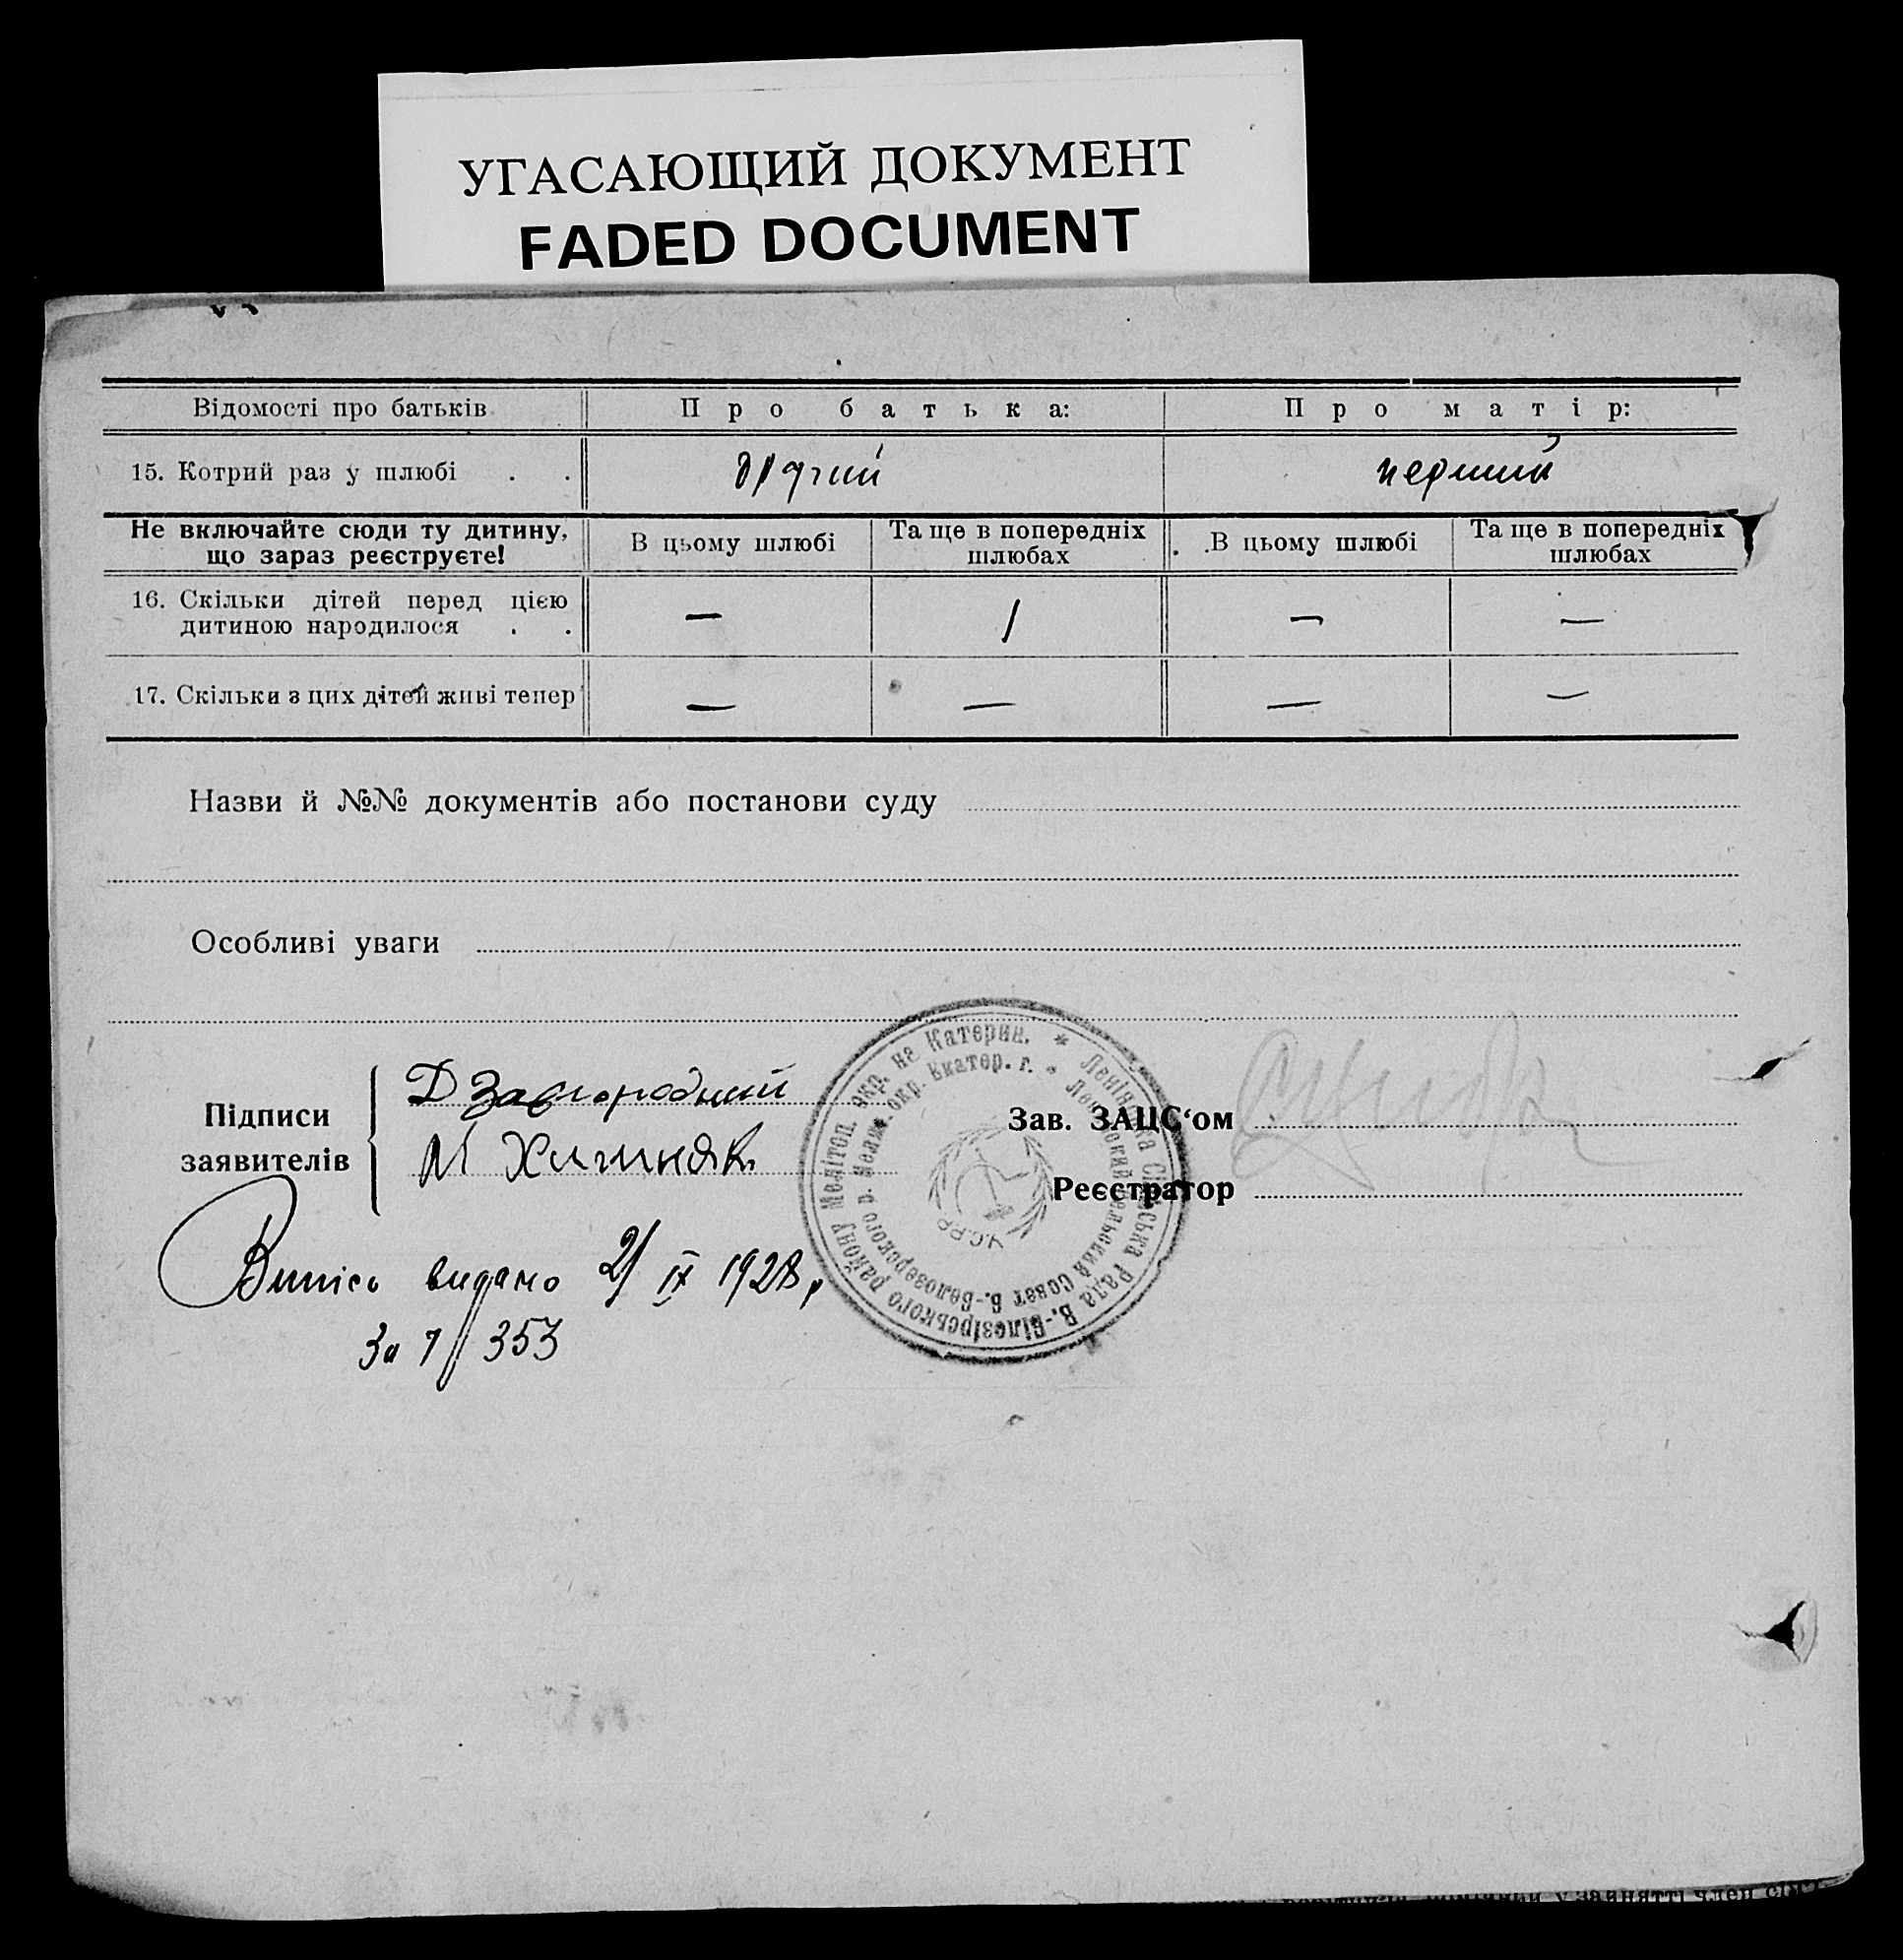 УГАСАЮЩИЙ ДОКУМЕНТ
FADED DOCUMENT
Відомості про батьків
Про батька:
Про матір:
15. Котрий раз у шлюбі . .
другий
перший
Не включайте сюди ту дитину,
що зараз реєструєте!
В цьому шлюбі
Та ще в попередніх
шлюбах
В цьому шлюбі
Та ще в попередніх
шлюбах
16. Скільки дітей перед цією
дитиною народилося . .
— 1 — —
17. Скільки з цих дітей живі тепер
— — — —
Назви й №№ документів або постанови суду
Особливі уваги
Підписи
заявителів
Д Завгородний
М
Зав. ЗАЦС‘ом
Реєстратор
Ленінська Сільська Рада В.-Білозірського району Мелітоп. окр. на Катерин.
Ленинский Сельский Совет В.-Белозерского р. Мелит. окр. Екатер. г.
У.С.Р.Р.
Випісь видано 2/IX 1928 р
За 7/353